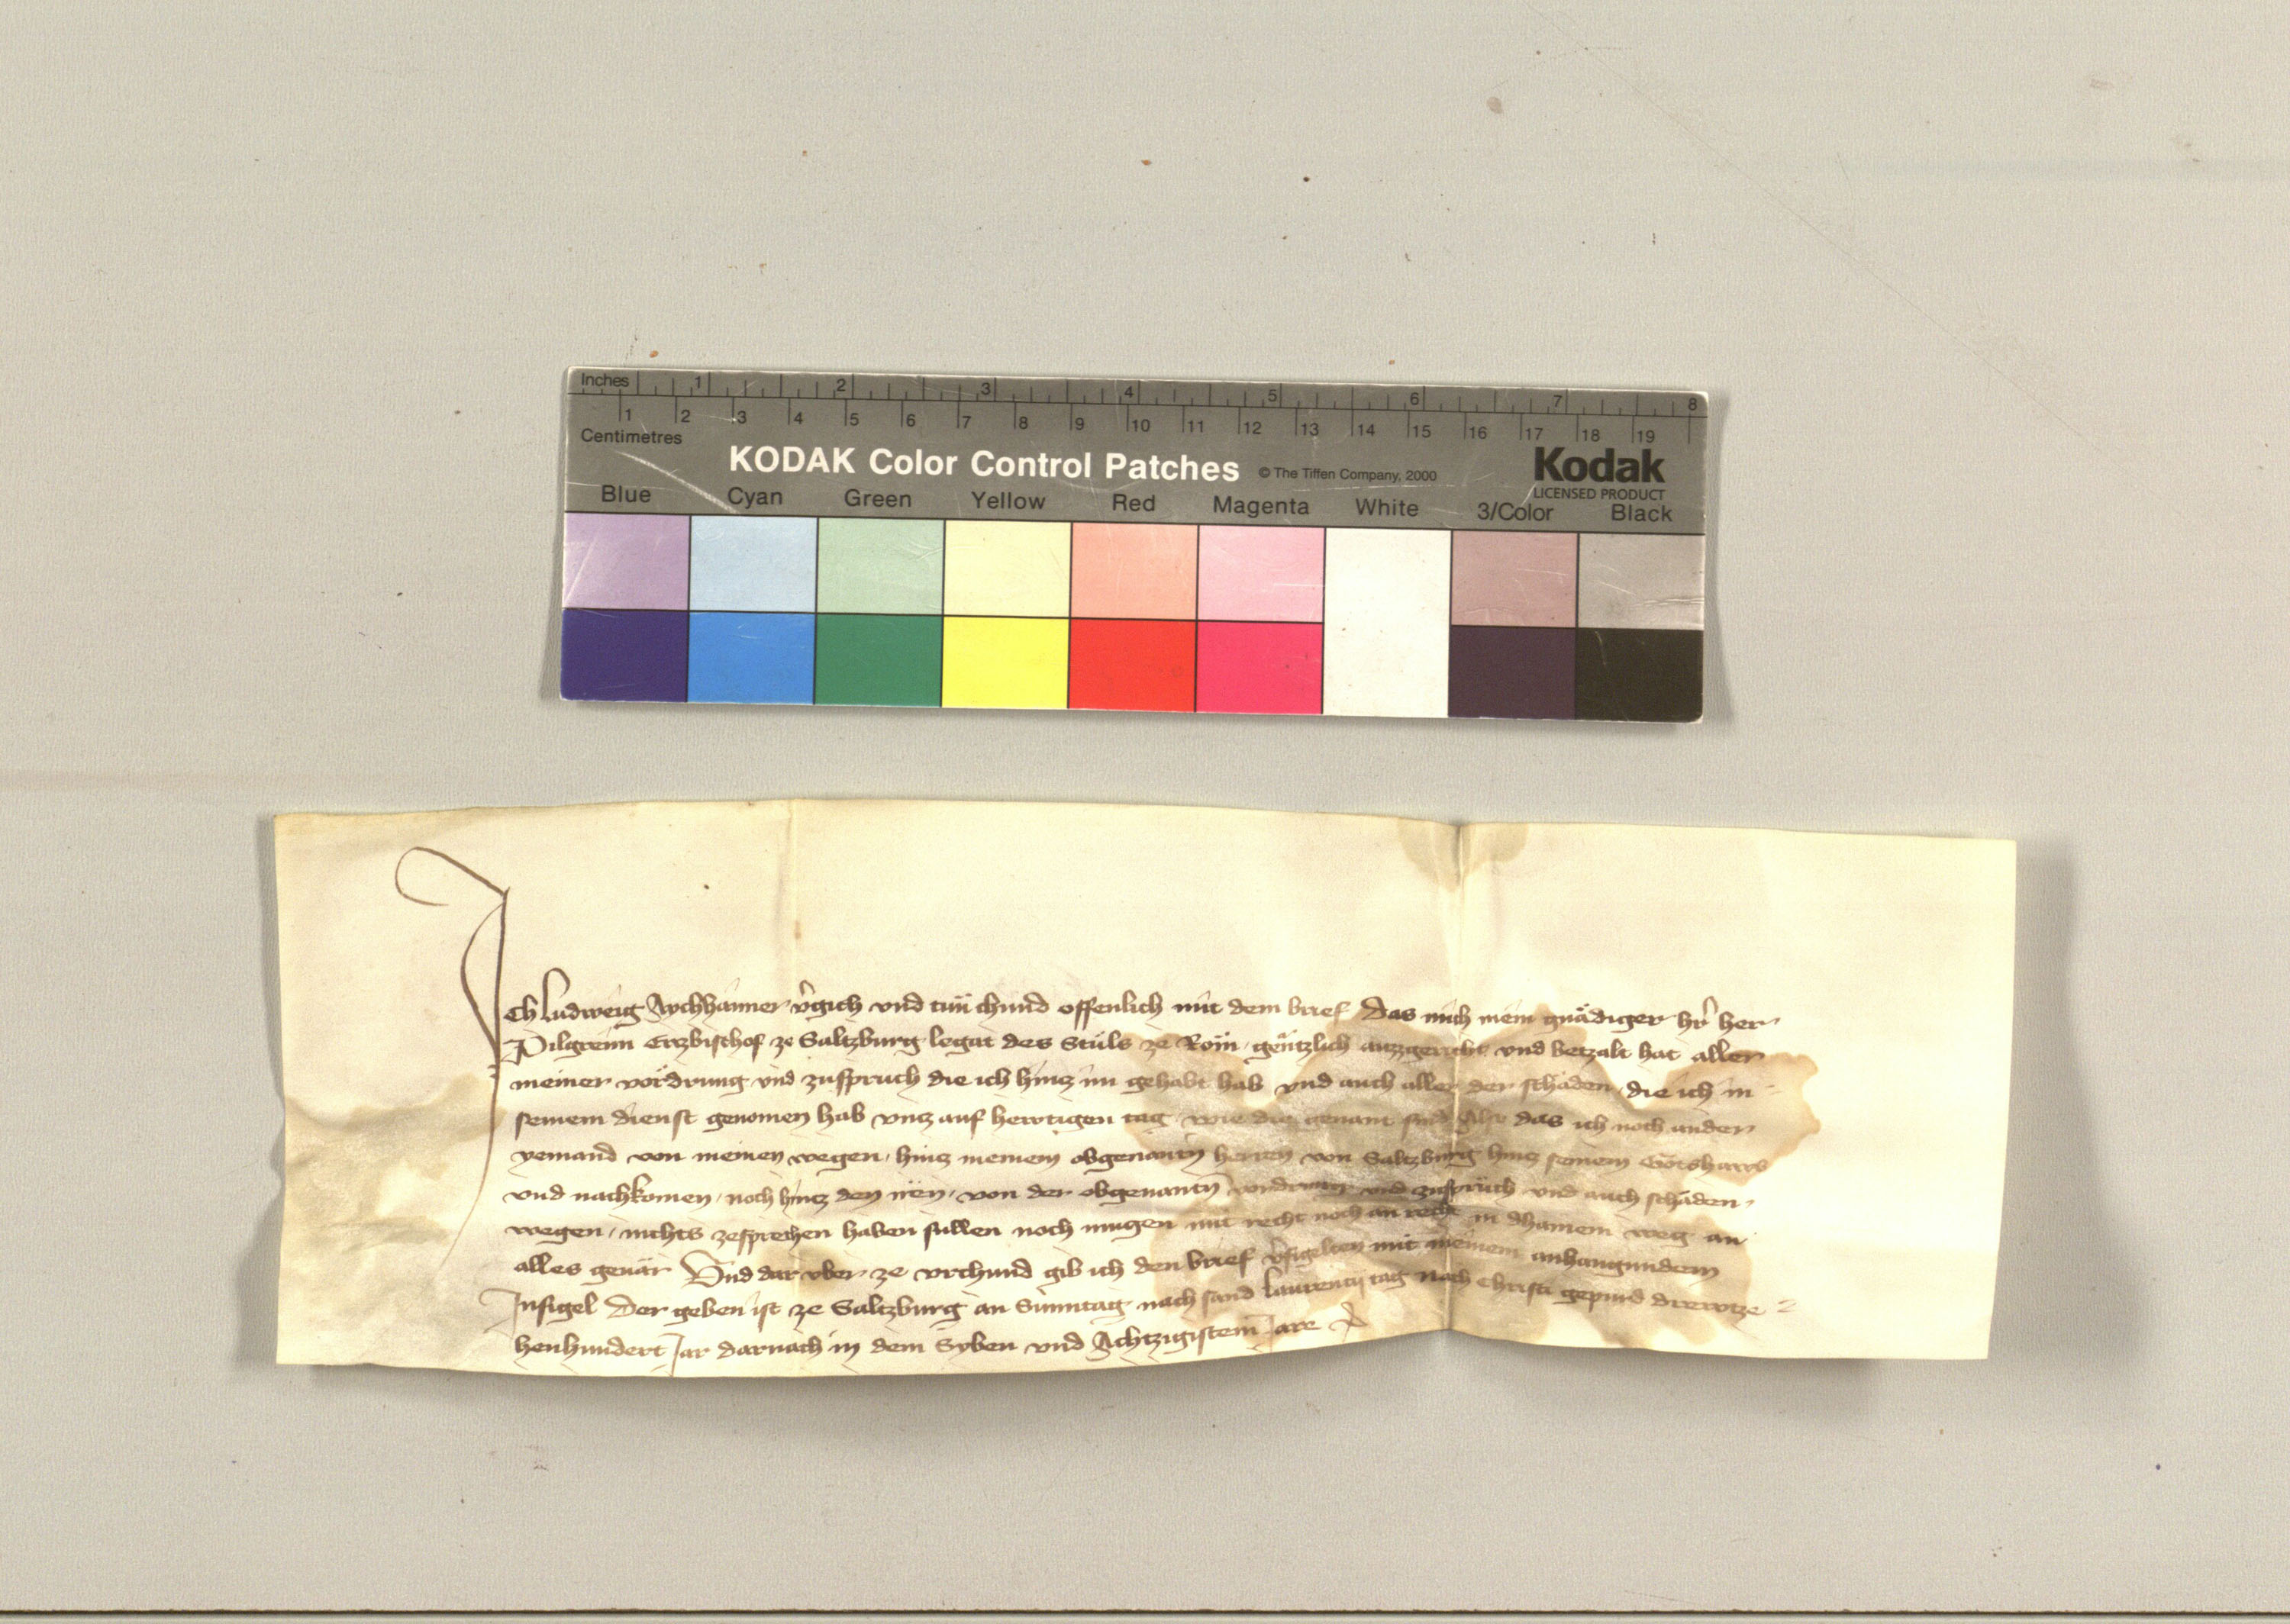 Inches 1 2 3 4 5 6 7 8
1 2 3 4 5 6 7 8 9 10 11 12 13 14 15 16 17 18 19
Centimetres
KODAK Color Control Patches © The Tiffen Company, 2000 Kodak
LICENSED PRODUCT
Blue Cyan Green Yellow Red Magenta White 3/Color Black
Ich Ludweig v̾gich vnd tun chund offenlich mit dem brief Das mich mein gnädiger hr̾ her
Pilgreim Ertzbischof ze Saltzburg legat des Stůls ze Rom gentzlich auzzgericht vnd betzalt hat aller
meiner vordrung vnd zuspruch die ich hintz im gehabt hab vnd auch aller der schäden die ich in
seinem dienst genomen hab vntz auf hewtigen tag wie die genant sind Also das ich noch ander
yemand von meinen wegen hintz meinem obgenantn̄ herren von Saltzburg hintz seinem Gotshaws
vnd nachkomen noch hintz den iren von der obgenantn̄ vordrung vnd zuspruch vnd auch schäden
wegen nichts zesprechen haben sullen noch mugen mit recht noch an recht in dhainem weg an
alles geuär Vnd dar vber ze vrchund gib ich den brief v̾sigelten mit meinem anhangundem
Insigel Der geben ist ze Saltzburg an Sunntag nach sand Laurencij tag nach Christi gepurd drewtze
henhundert Jar darnach in dem Syben vnd Achtzigistem Jare